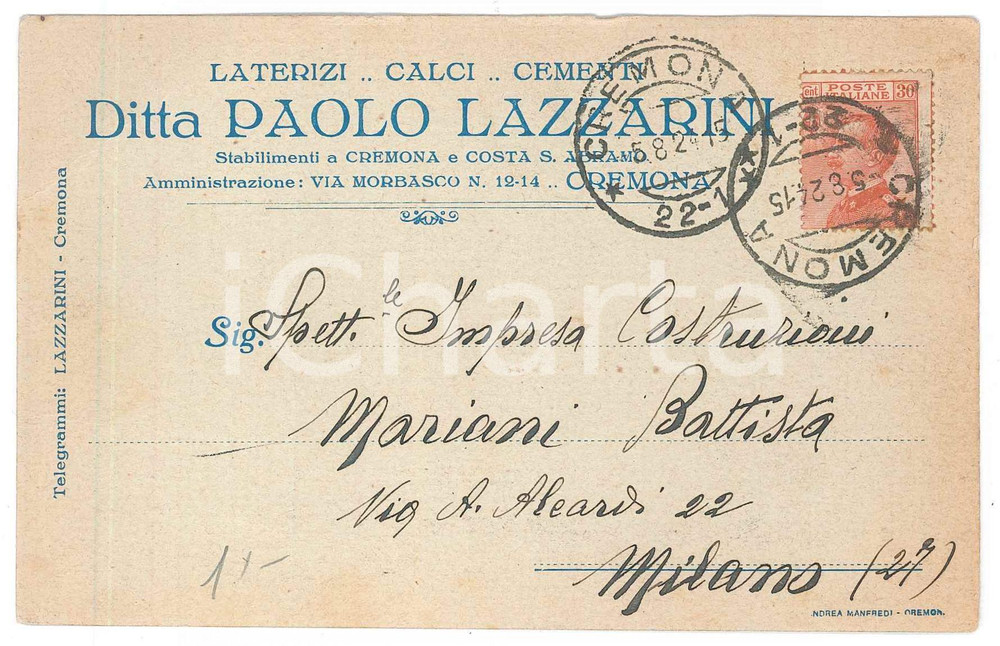 LATERIZI .. CALCI .. CEMENTI
Ditta PAOLO LAZZARINI
Stabilimenti a CREMONA e COSTA S. ABRAMO
Amministrazione: VIA MORBASCO N. 12-14 .. CREMONA
Telegrammi: LAZZARINI - Cremona
CREMONA
5.8.24.15
22-1
CREMONA
5.8.24.15
22-1
cent 30
POSTE
ITALIANE
iCharta
Sig. Spett.le Impresa Costruzioni
Mariani Battista
Via A. Aleardi 22
Milano (27)
NDREA MANFREDI - CREMON.